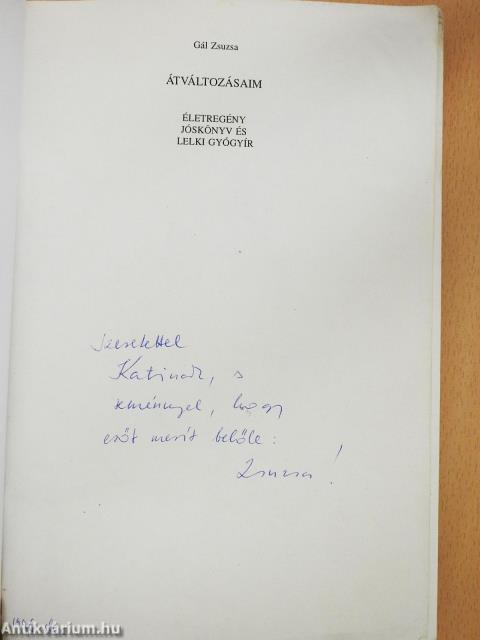 Gál Zsuzsa
ÁTVÁLTOZÁSAIM
ÉLETREGÉNY
JÓSKÖNYV ÉS
LELKI GYÓGYÍR
Szeretettel
Katinak, s
reménnyel, hogy
erőt merít belőle:
Zsuzsa!
Antikvárium.hu